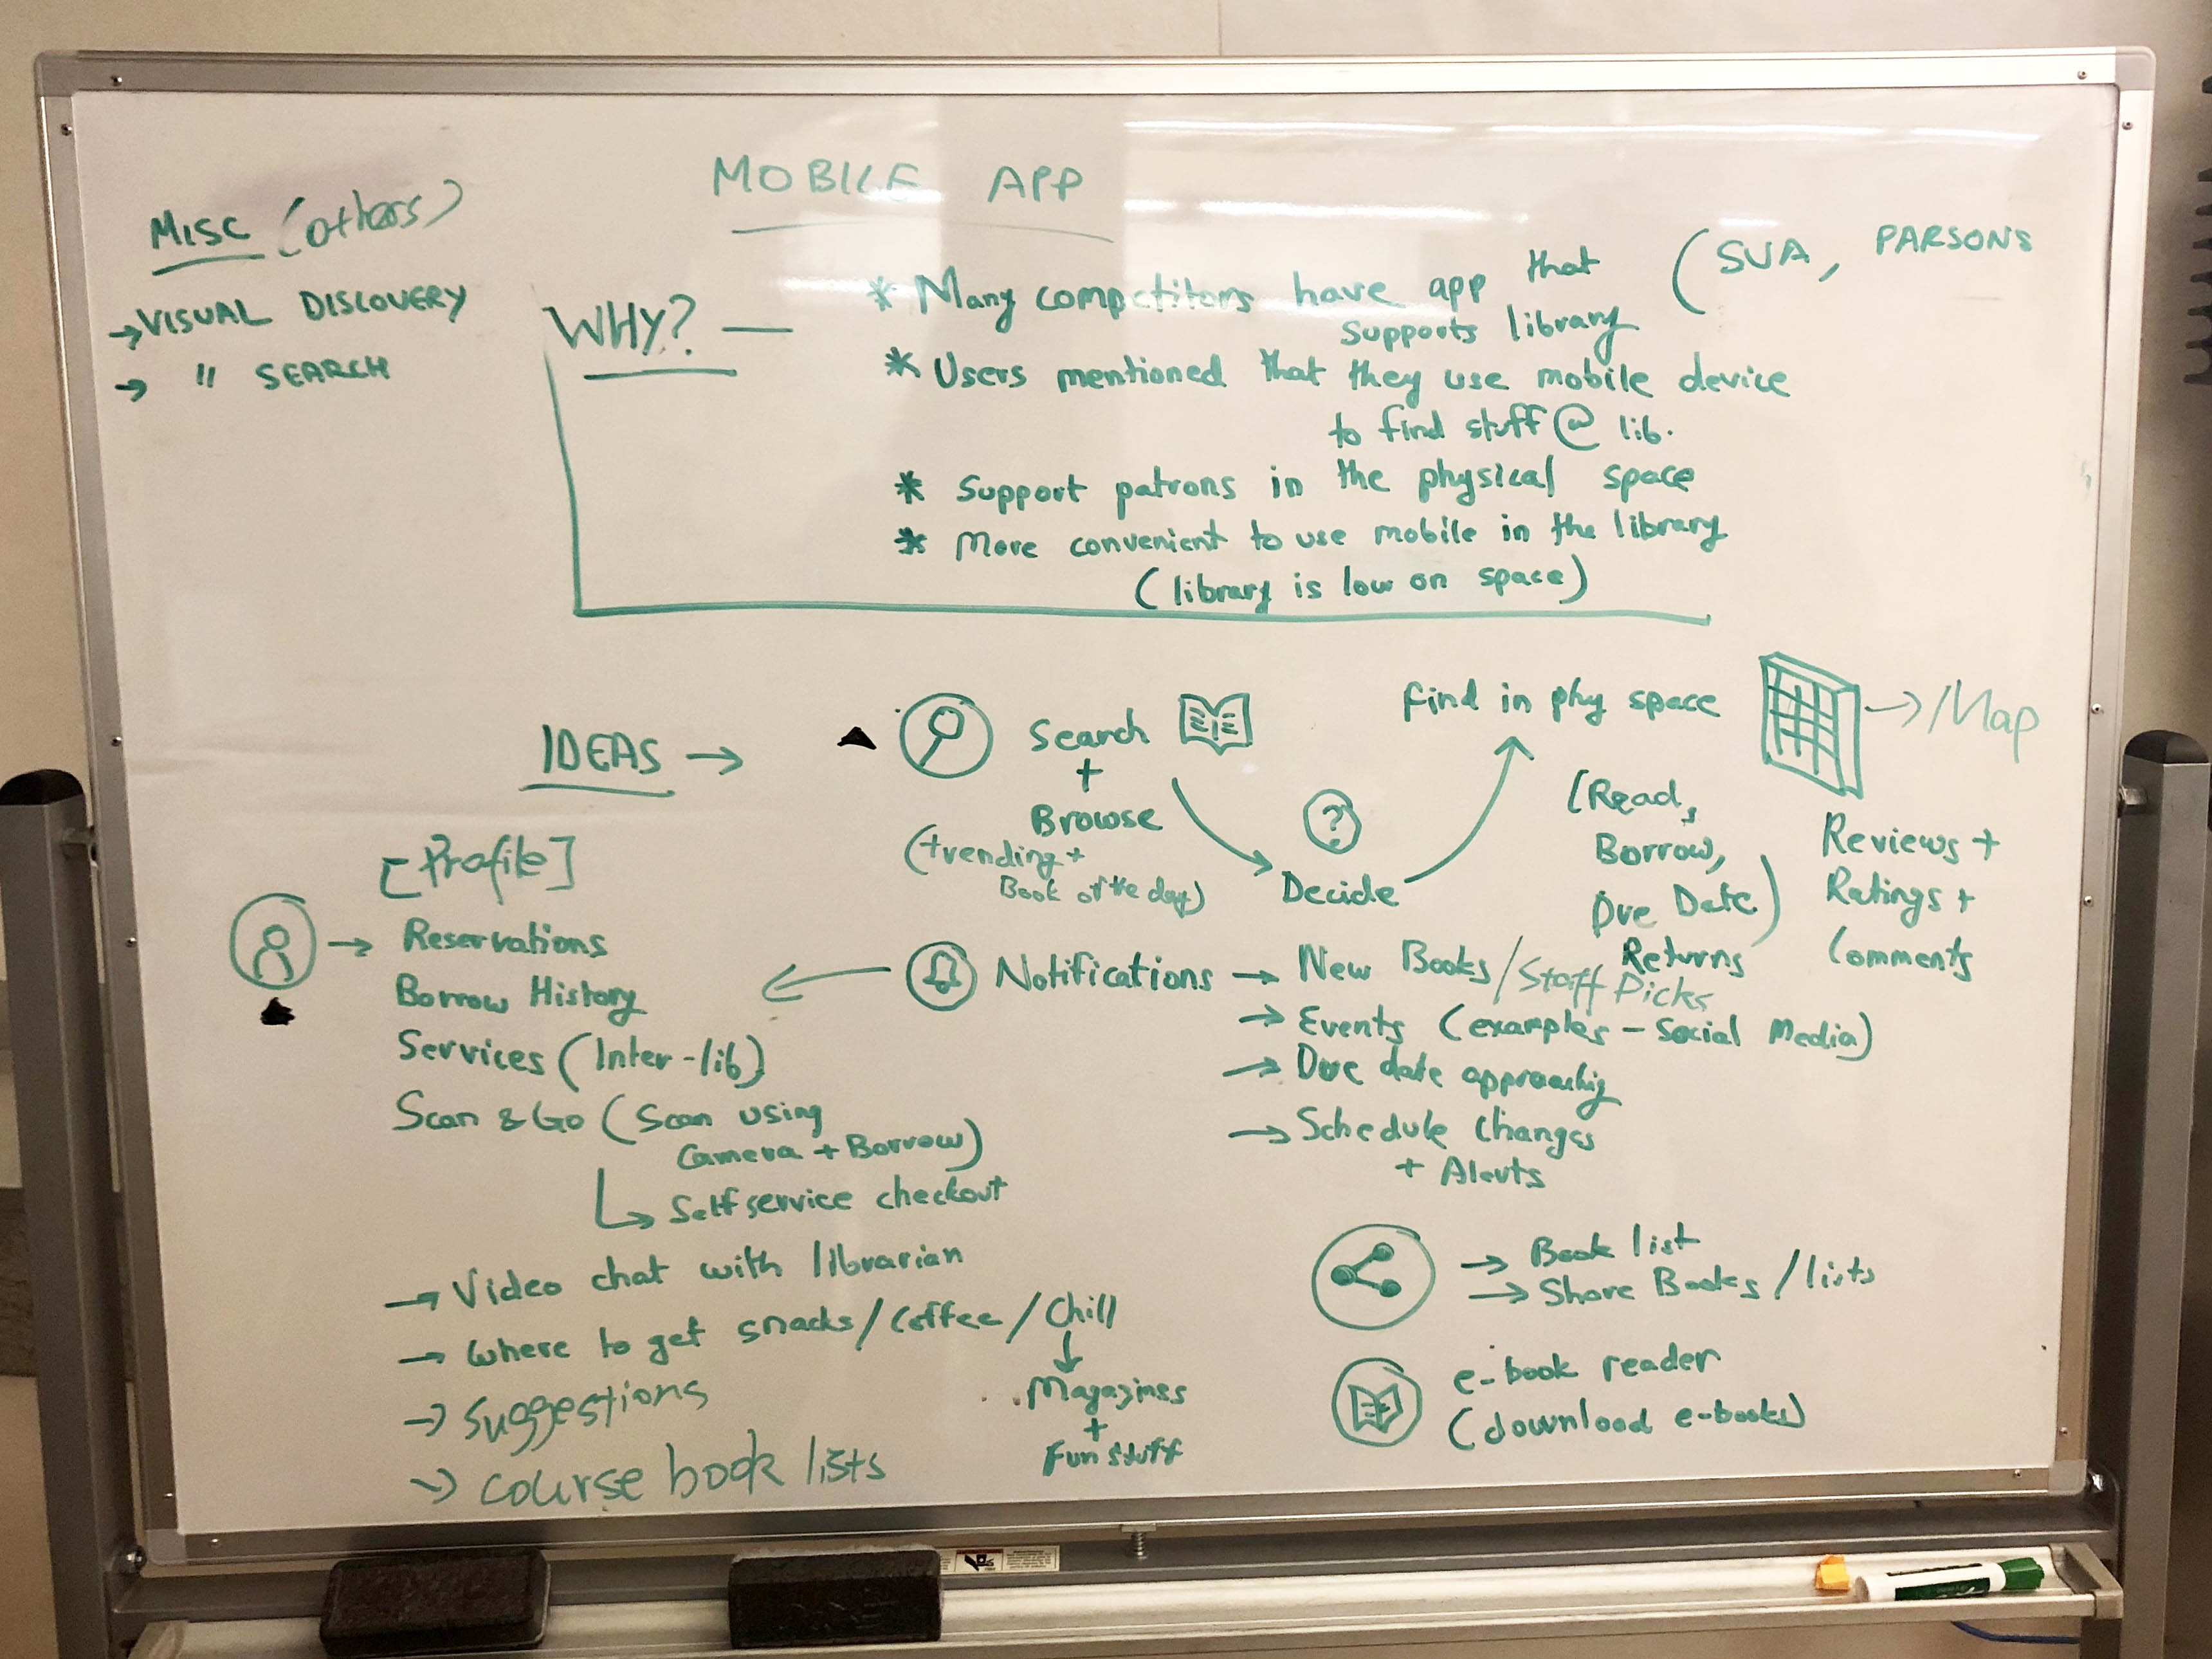 MOBILE APP
MISC (others)
→ VISUAL DISCOVERY
→ " SEARCH
WHY? —
* Many competitors have app that (SVA, PARSONS
supports library
* Users mentioned that they use mobile device
to find stuff @ lib.
* Support patrons in the physical space
* More convenient to use mobile in the library
(library is low on space)
IDEAS →
Search
+
Browse
(trending +
Book of the day)
?
Decide
find in phy space
→ Map
(Read,
Borrow,
Due Date)
Returns
Reviews +
Ratings +
Comments
[Profile]
→ Reservations
Borrow History
Services (Inter-lib)
Scan & Go (Scan using
Camera + Borrow)
Self service checkout
→ Video chat with librarian
→ Where to get snacks/coffee/Chill
Magazines
+
Fun stuff
→ Suggestions
→ course book lists
Notifications → New Books/Staff Picks
→ Events (examples – Social Media)
→ Due date approachig
→ Schedule changes
+ Alerts
→ Book list
→ Share Books/lists
e-book reader
(download e-books)